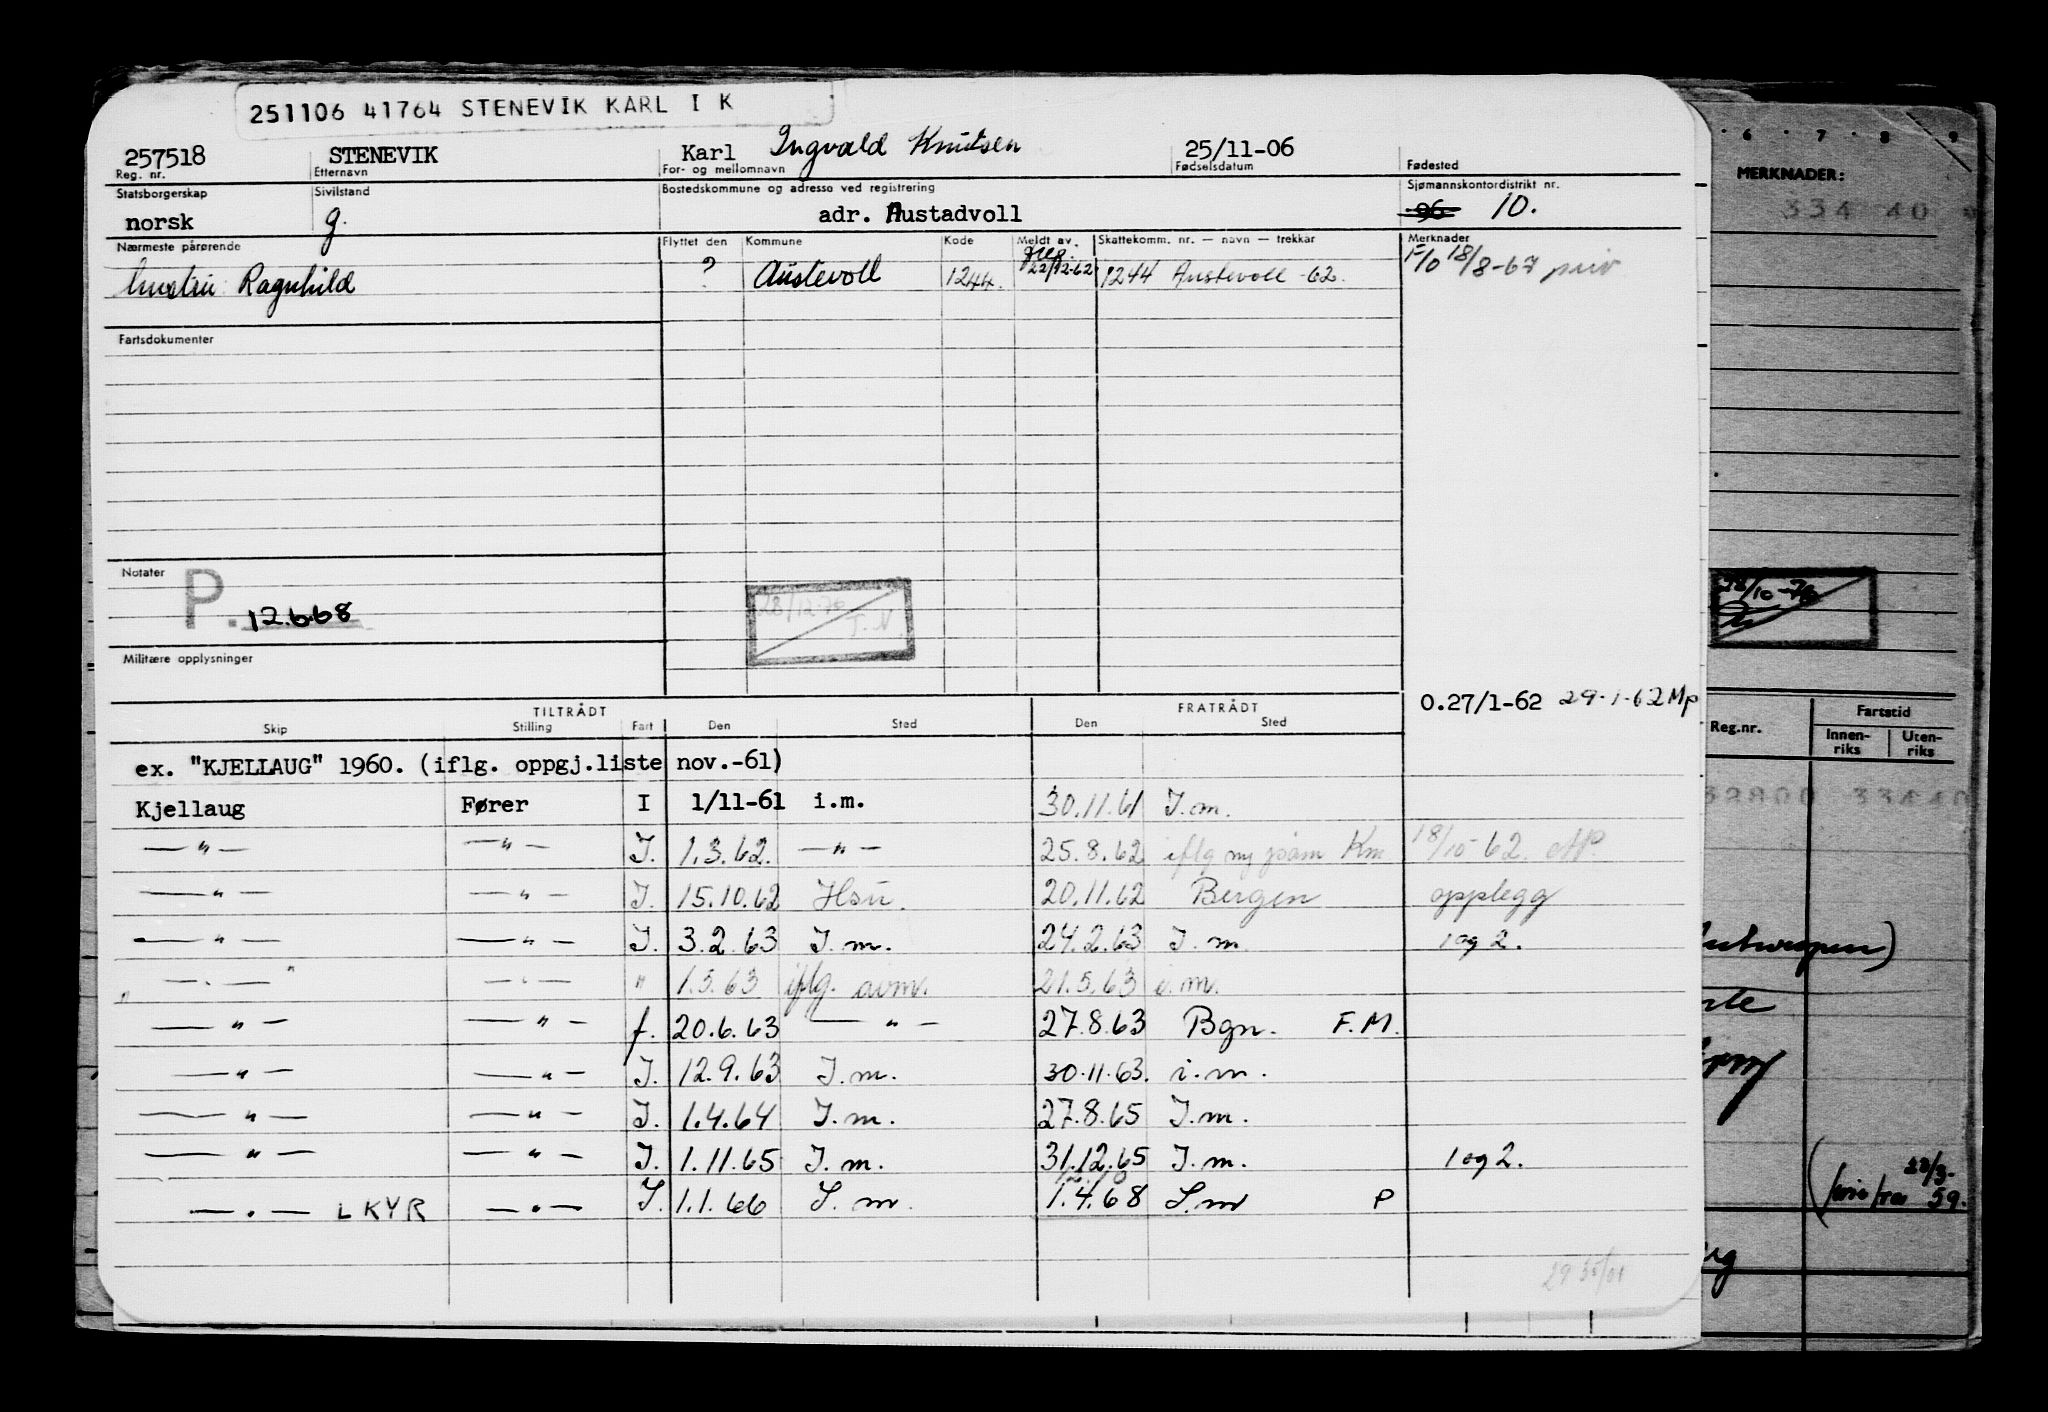 251106 41764 STENEVIK KARL I K
257518 STENEVIK Karl Ingvald Knutsen 25/11-06
Reg. nr. Etternavn For- og mellomnavn Fødselsdatum Fødested
Statsborgerskap Sivilstand Bostedskommune og adresse ved registrering Sjømannskontordistrikt nr.
norsk g. adr. Austadvoll 96 10.
Nærmeste pårørende Flyttet den Kommune Kode Meldt av Skattekomm. nr. — navn — trekkar Merknader
hustru: Ragnhild ? Austevoll 1244. 22/12-62 1244 Austevoll -62. F/o 18/8-67 priv
Fartsdokumenter
Notater
P. 12.6.68
28/12-70 T.N
Militære opplysninger
O.27/1-62 29-1-62 Mp
TILTRÅDT FRATRÅDT
Skip Stilling Fart Den Sted Den Sted
ex. "KJELLAUG" 1960. (iflg. oppgj.liste nov.-61)
Kjellaug Fører I 1/11-61 i.m. 30.11.61 I.m.
— " — — " — I. 1.3.62. — " — 25.8.62 iflg ny Km 18/10-62.
— " — — " — I. 15.10.62 Hsu. 20.11.62 Bergen opplegg
— " — — " — I. 3.2.63 I.m. 24.2.63 I.m. 1 og 2.
" — . — " — . — " 1.5.63 iflg. avm. 21.5.63 i.m.
— " — — " — f. 20.6.63 — " — 27.8.63 Bgn. F.M.
— " — — " — I. 12.9.63 I.m. 30.11.63. i.m.
— " — — " — I. 1.4.64 I.m. 27.8.65 I.m.
— " — — " — I. 1.11.65 I.m. 31.12.65 I.m. 1 og 2.
— . — LKYR — . — I. 1.1.66 I.m. 1.4.68 I.m P
6 7 8 9
MERKNADER:
334 40
28/10-70
Reg.nr. Fartstid
Innenriks Utenriks
32800 33440
Antwerpen)
28/3-59.